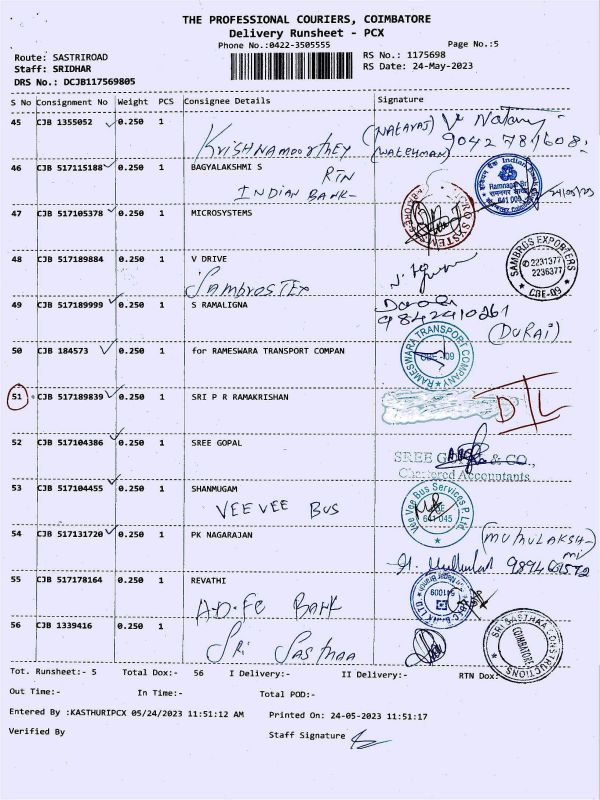 THE PROFESSIONAL COURIERS, COIMBATORE
Delivery Runsheet - PCX
Phone No.:0422-3505555 Page No.:5
Route: SASTRIROAD RS No.: 1175698
Staff: SRIDHAR RS Date: 24-May-2023
DRS No.: DCJB117569805
S No Consignment No Weight PCS Consignee Details Signature
45 CJB 1355052 0.250 1 (NATARAJ)
KRISHNAMOORTHEY (WATCHMAN)
46 CJB 517115188 0.250 1 BAGYALAKSHMI S
RTN
INDIAN BANK
Indian Bank
Ramnagar Br
641 009
24/05/23
47 CJB 517105378 0.250 1 MICROSYSTEMS
48 CJB 517189884 0.250 1 V DRIVE
SAMBROSTEX
SAMBROS EXPORTERS
2231377
2236377
CBE-09
49 CJB 517189999 0.250 1 S RAMALIGNA
9842410261
(DURAI)
50 CJB 184573 0.250 1 for RAMESWARA TRANSPORT COMPAN
RAMESWARA TRANSPORT COMPANY
CBE -09
51 CJB 517189839 0.250 1 SRI P R RAMAKRISHAN
D/L
52 CJB 517104386 0.250 1 SREE GOPAL
SREE & CO.,
Chartered Accountants
53 CJB 517104455 0.250 1 SHANMUGAM
VEE VEE BUS
Vee Vee Bus Services P. Ltd
641 045
54 CJB 517131720 0.250 1 PK NAGARAJAN
55 CJB 517178164 0.250 1 REVATHI
BANK
56 CJB 1339416 0.250 1
SRI SASTHAA
SRI SASTHAA CONSTRUCTIONS
COIMBATORE
Tot. Runsheet:- 5 Total Dox:- 56 I Delivery:- II Delivery:- RTN Dox:
Out Time:- In Time:- Total POD:-
Entered By :KASTHURIPCX 05/24/2023 11:51:12 AM Printed On: 24-05-2023 11:51:17
Verified By Staff Signature